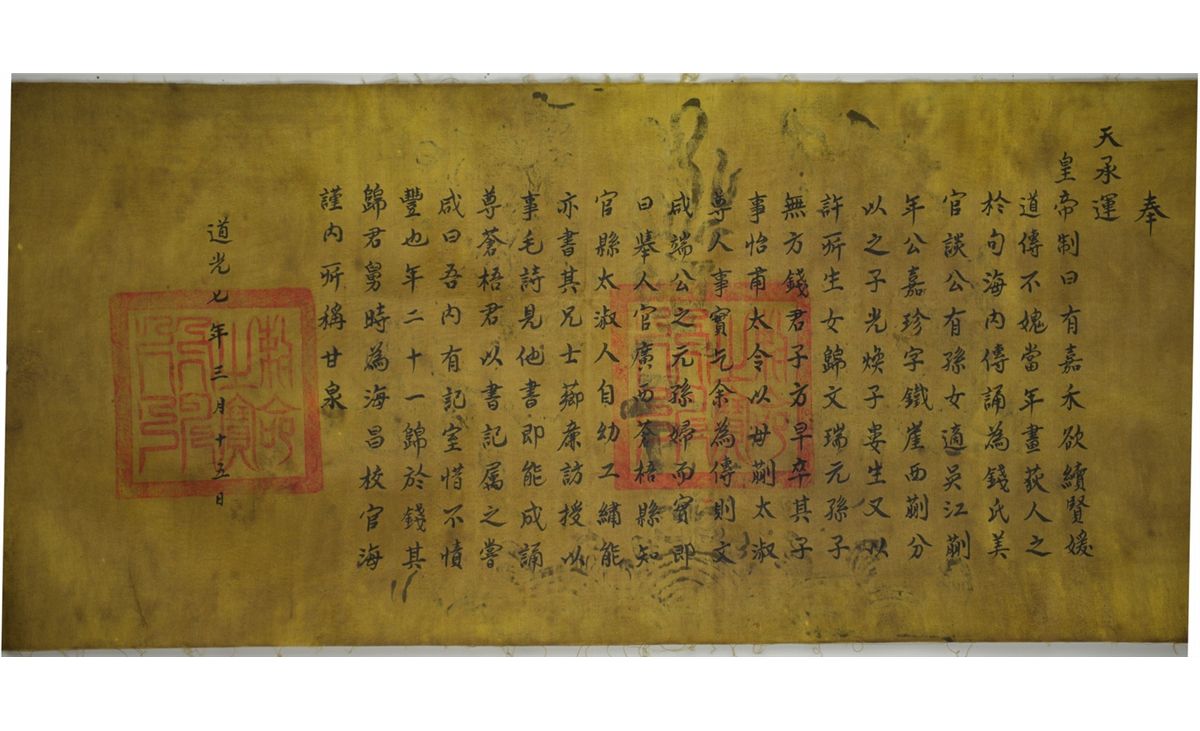 奉
天承運
皇帝制曰有嘉禾欲續賢媛
道傳不媿當年畫荻人之
於句海内傳誦為錢氏美
官談公有孫女適吳江蒯
年公嘉珍字鐵崖西蒯分
以之子光煥子娄生又以
許所生女歸文瑞元孫子
無方錢君子方早卒其子
事怡甫太令以母蒯太淑
尊人事實乞余為傳則文
咸端公之元孫婦而實即
曰舉人官廣西蒼梧縣知
官縣太淑人自幼工繡能
亦書其兄士薌廉訪授以
事毛詩見他書即能成誦
尊蒼梧君以書記属之嘗
咸曰吾内有記室惜不憤
豐也年二十一歸於錢其
歸君舅時為海昌校官海
謹内所稱甘泉
道光七年三月十五日